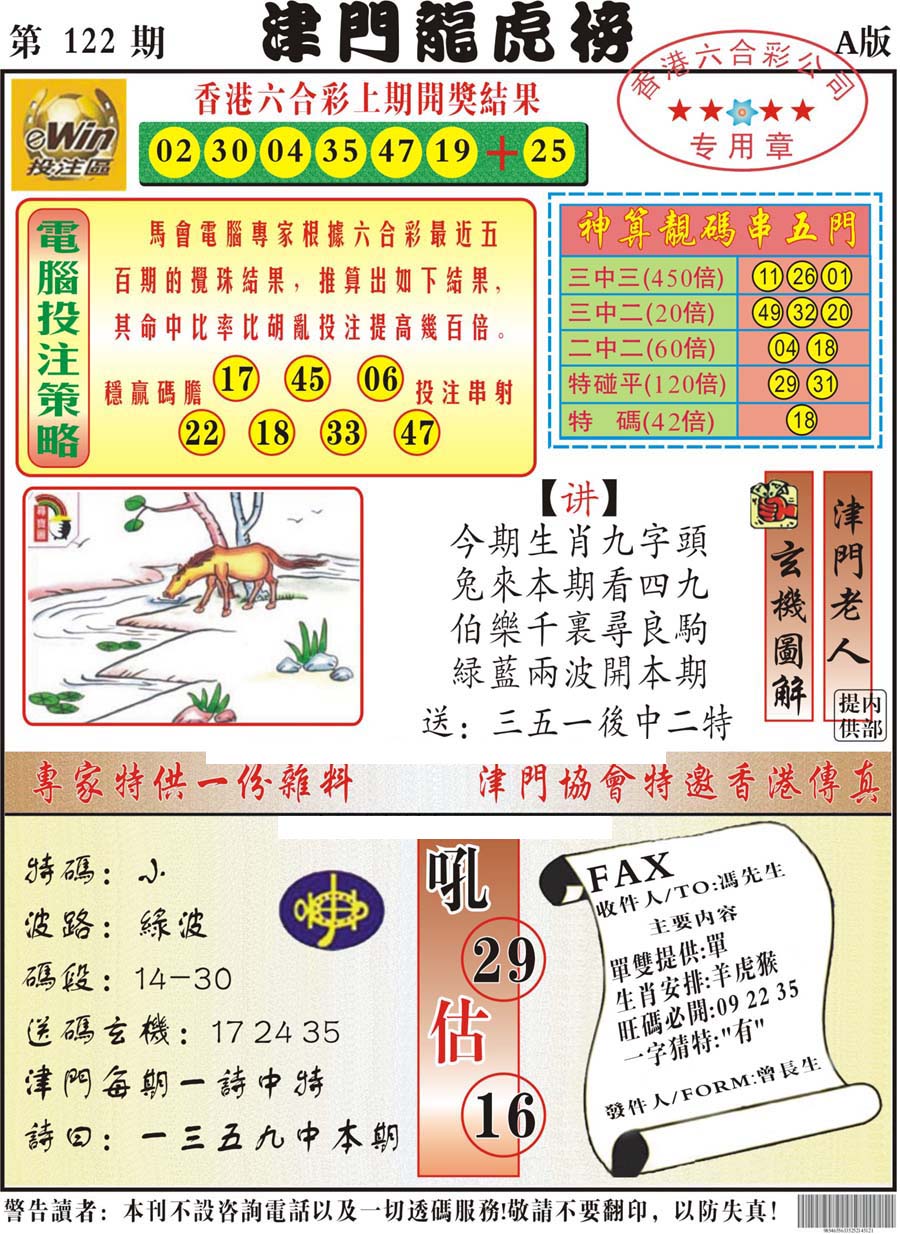 第 122 期
津門龍虎榜
A版
香港六合彩公司
专用章
eWin
投注區
香港六合彩上期開獎結果
02 30 04 35 47 19 + 25
電腦投注策略
馬會電腦專家根據六合彩最近五
百期的攪珠結果，推算出如下結果，
其命中比率比胡亂投注提高幾百倍。
穩贏碼膽 17 45 06 投注串射
22 18 33 47
神算靚碼串五門
三中三(450倍) 11 26 01
三中二(20倍) 49 32 20
二中二(60倍) 04 18
特碰平(120倍) 29 31
特 碼(42倍) 18
尋寶圖
【讲】
今期生肖九字頭
兔來本期看四九
伯樂千裏尋良駒
緑藍兩波開本期
送：三五一後中二特
玄機圖解
津門老人
提供
内部
專家特供一份雜料
津門協會特邀香港傳真
特碼：小
波路：綠波
碼段：14-30
送碼玄機：17 24 35
津門每期一詩中特
詩曰：一三五九中本期
吼
29
估
16
FAX
收件人/TO:馮先生
主要内容
單雙提供:單
生肖安排:羊虎猴
旺碼必開:09 22 35
一字猜特:"有"
發件人/FORM:曾長生
警告讀者：本刊不設咨詢電話以及一切透碼服務!敬請不要翻印，以防失真！